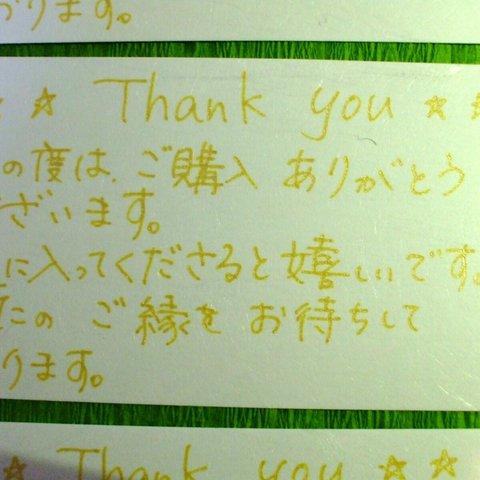 ります。
☆ Thank you ☆
の度は、ご購入 ありがとう
ざいます。
に入ってくださると嬉しいです。
たの ご縁を お待ちして
ります。
☆ Thank you ☆ ☆